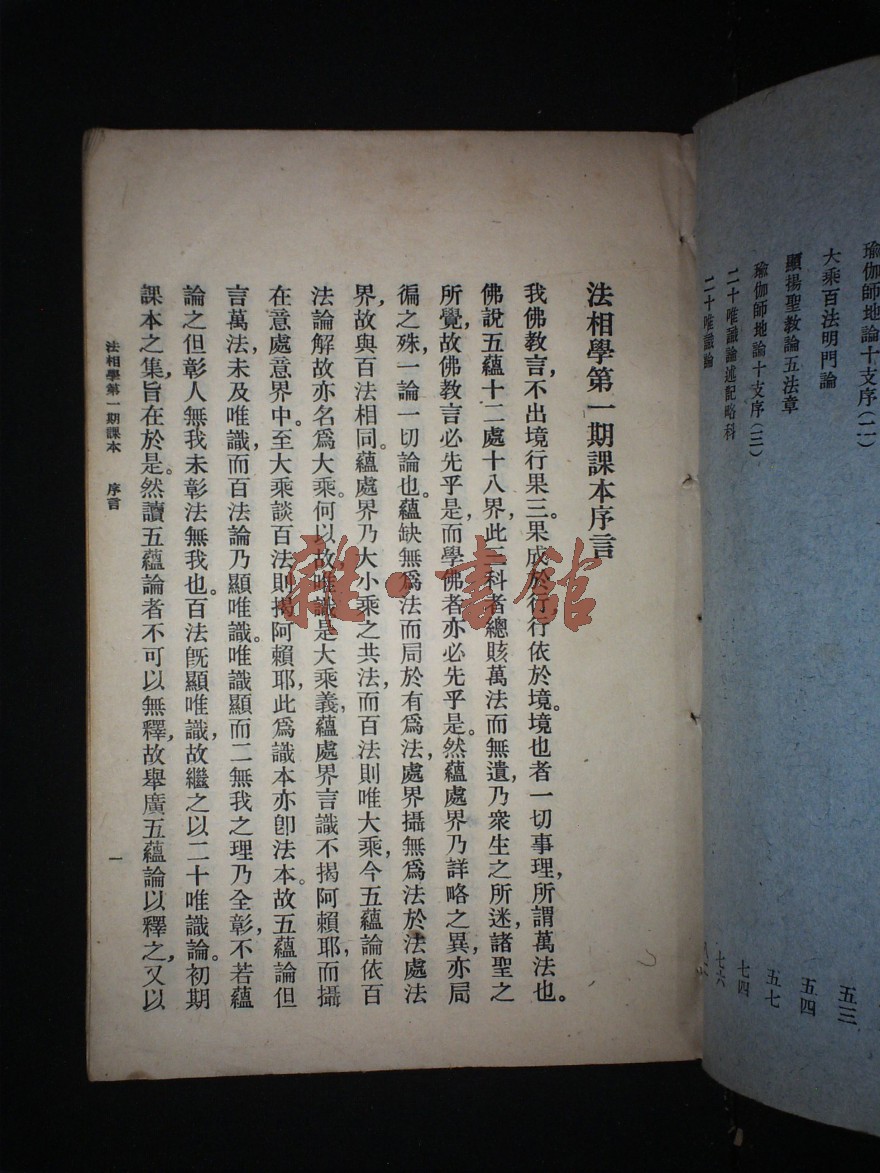 瑜伽師地論十支序(二)
五三
大乘百法明門論
五四
顯揚聖教論五法章
五七
瑜伽師地論十支序(三)
七四
二十唯識論述記略科
七六
二十唯識論
法相學第一期課本序言
我佛教言，不出境行果三。果成於行，行依於境。境也者一切事理，所謂萬法也。
佛說五蘊十二處十八界，此三科者總賅萬法而無遺，乃衆生之所迷，諸聖之
所覺，故佛教言必先乎是，而學佛者亦必先乎是。然蘊處界乃詳略之異，亦局
徧之殊，一論一切論也。蘊缺無爲法而局於有爲法，處界攝無爲法於法處法
界，故與百法相同。蘊處界乃大小乘之共法，而百法則唯大乘，今五蘊論依百
法論解故亦名爲大乘。何以故，唯識是大乘義，蘊處界言識不揭阿賴耶，而攝
在意處意界中。至大乘談百法則揭阿賴耶，此爲識本亦卽法本。故五蘊論但
言萬法未及唯識，而百法論乃顯唯識。唯識顯而二無我之理乃全彰，不若蘊
論之但彰人無我未彰法無我也。百法旣顯唯識，故繼之以二十唯識論。初期
課本之集，旨在於是。然讀五蘊論者不可以無釋，故舉廣五蘊論以釋之，又以
法相學第一期課本　序言
一
雜·書館